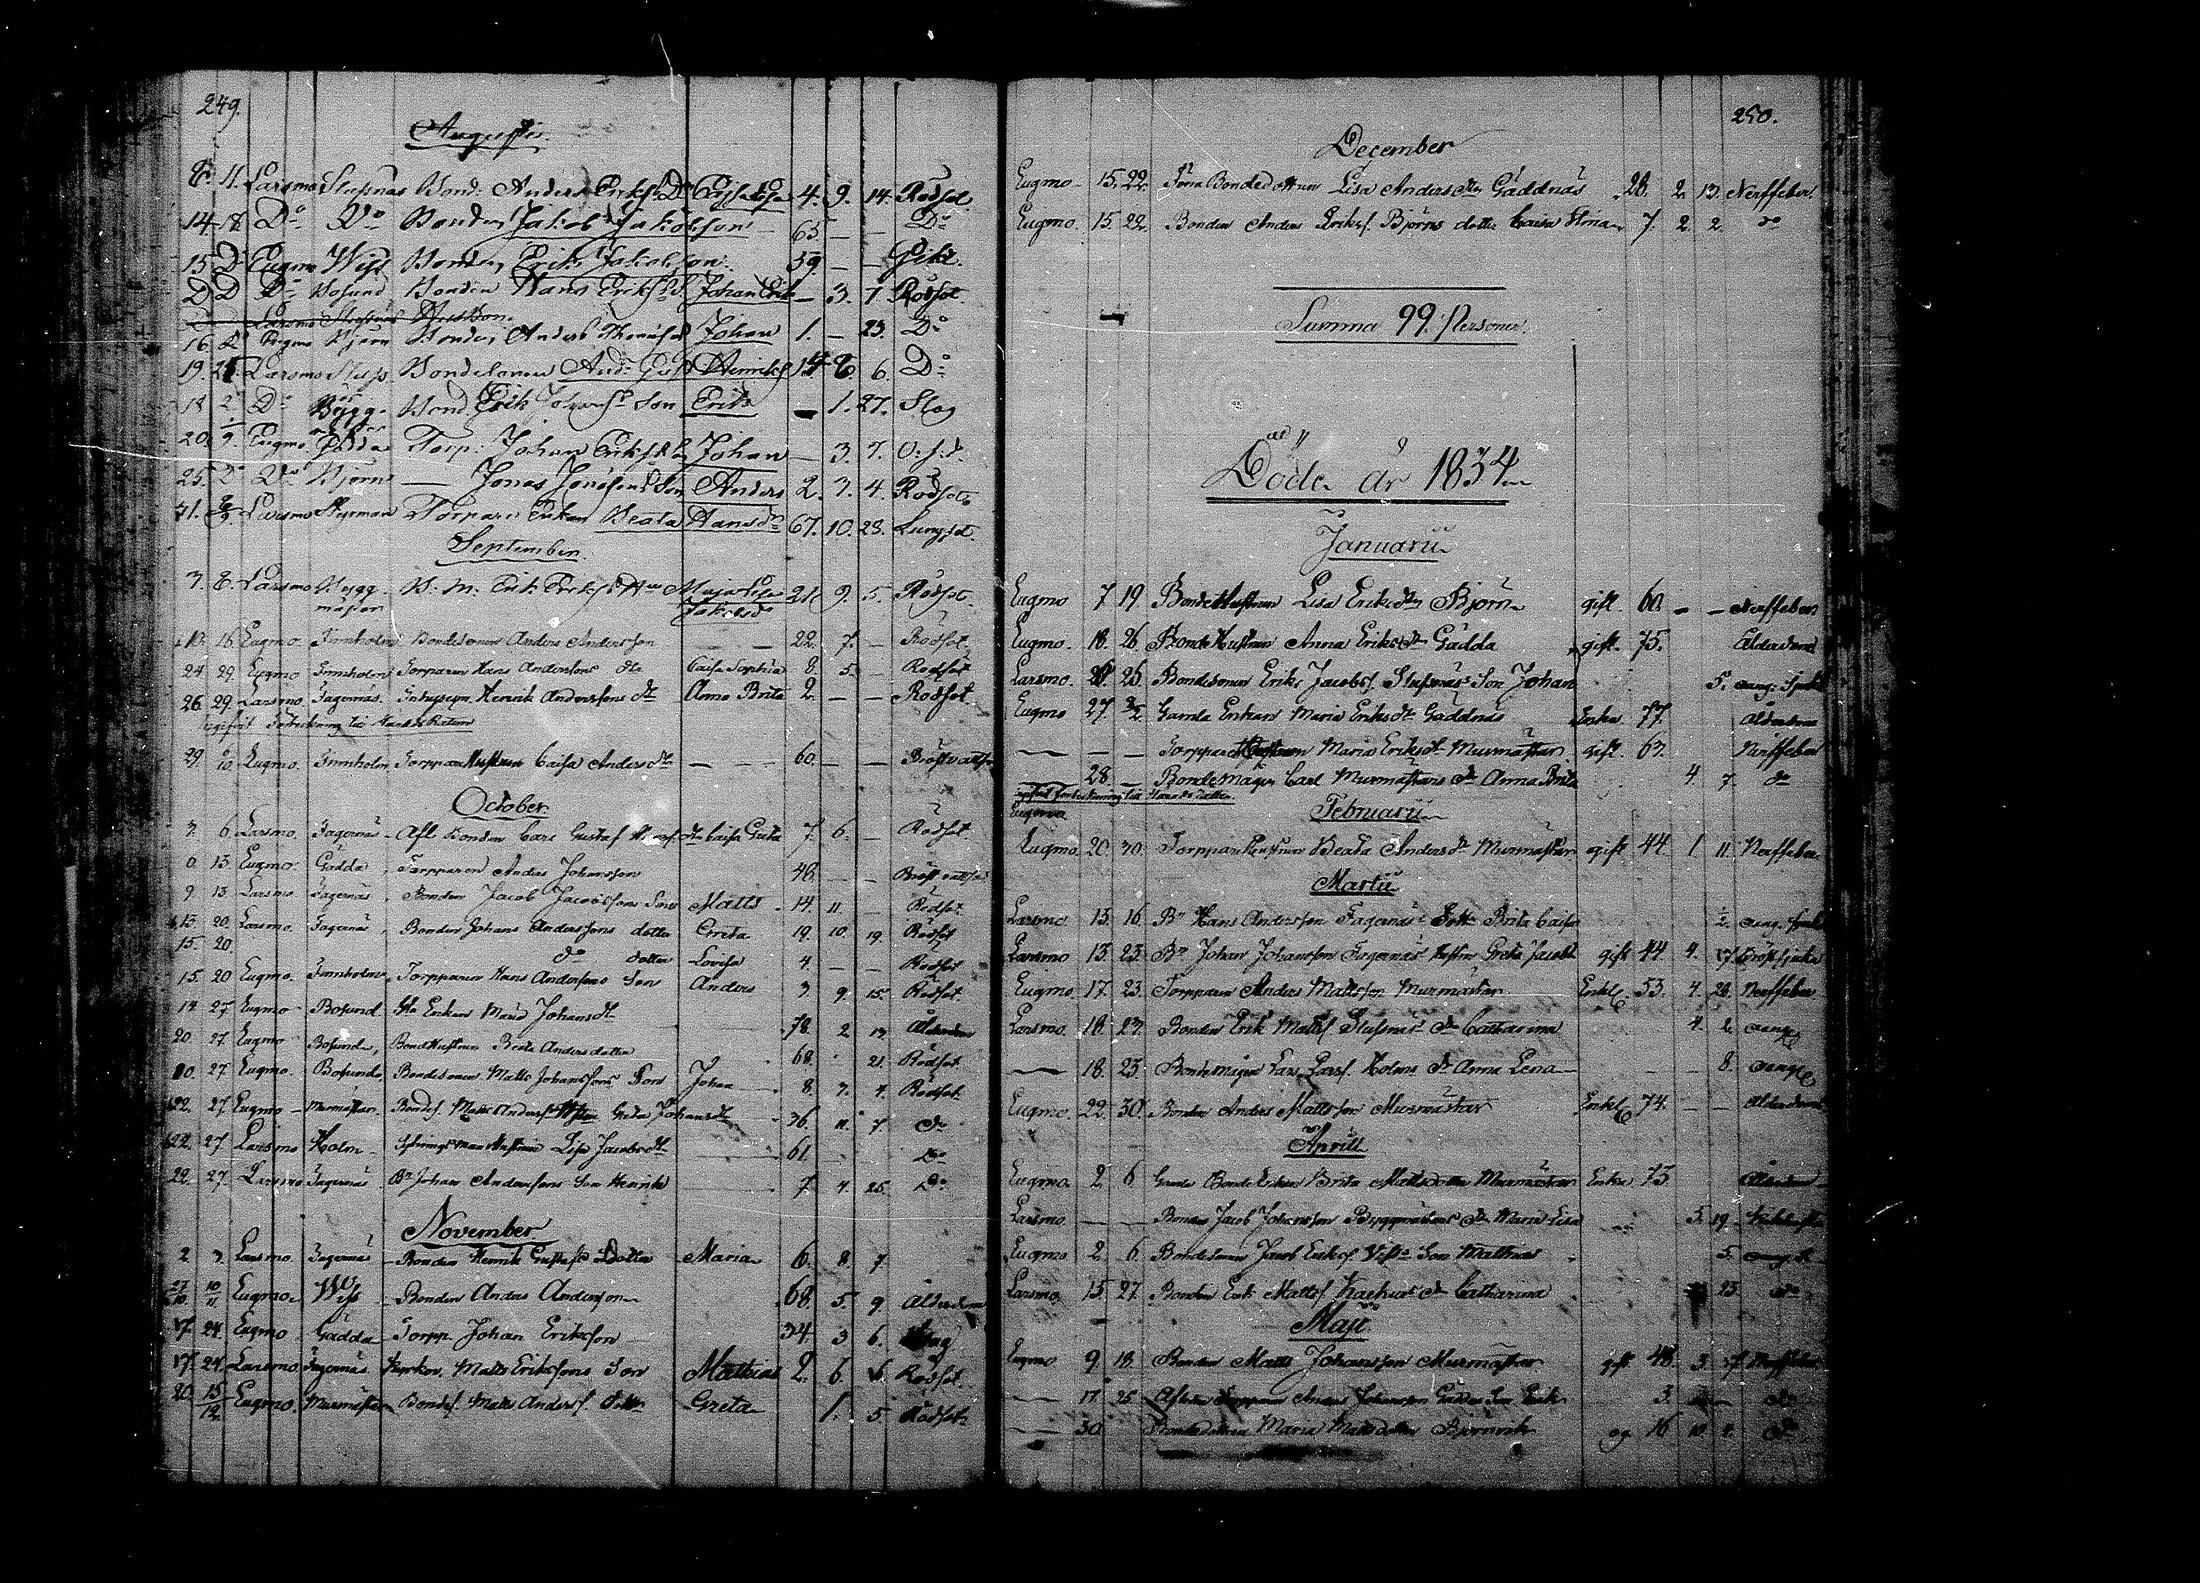 249.
Augusti
8. 11. Larsmo Slussnäs Bond. Anders Eriks. Dr 4. 9. 14. Rödsot
14 18 Do Do Bonden Jakob Jakobsson 65 — — Do
15 Do Eugmo Wist Bonden Erik Jakobsson 59 — — Gikt.
D D Do Bosund Bonden Hans Eriks. S. Johan Erik — 3. 7 Rödsot
Larsmo Slussnäs
16 Do Eugmo Björn Bonden Anders Thomas Johan 1. — 23. Do
19. 25 Larsmo Sluss. Bondesonen And. Gust. Henriks 14 8. 6. Do
18 Do Bygg. Bond. Erik Johans. Son Erik — 1. 27. Slag
20. Eugmo Gädda Torp. Johan Eriks. Son Johan — 3. 7.
25. Do Do Björn — Jonas Jonasson Son Anders 2. 3. 4. Rödsot
31. 8/9 Larsmo Styrman Torpare Enkan Beata Hansdr 67. 10. 23. Lungsot.
September.
3. 8. Larsmo Bygg- B. M. Erik Eriks. Hu Maja Lisa 21. 9. 5. Rödsot.
mäster Jakobsd
10. 16 Eugmo. Finnholm Bondesonen Anders Andersson 22. 7. — Rödsot.
24 29. Eugmo Finnholm Torparen Hans Anderssons dtr Caisa Sophia 8. 5. — Rödsot
26. 29. Larsmo. Fagernäs. Inhysepn Henrik Anderssons dtr Anna Brita 2. — — Rödsot.
uppgifvit Förtekning till Härads Rätten
29. 6/10 Eugmo. Finnholm Torparehustrun Caisa Andersdtr — — — 60. — — Bröstvattsot
October
3. 6 Larsmo. Fagernäs Afl. Bonden Carl Gustaf dtr Caisa Greta 7. 6. — Rödsot
6 13 Eugmo. Gädda, Torpparen Anders Johansson 48 — — Bröstvattsot
9 13 Larsmo Fagernäs. Bonden Jacob Jacobssons Son Matts 14. 11. — Rödsot
13. 20. Larsmo. Fagernäs, Bonden Johans Anderssons dotter Greta 19. 10. 19. Rödsot
15. 20. do dotter Lovisa 4. — — Rödsot
15. 20 Eugmo. Finnholm, Torpparen Hans Anderssons Son Anders 3 9. 15. Rödsot.
14 27 Eugmo Bosund Gla Enkan Maria Johansdtr 78. 2 13 Ålderdom
20. 27 Eugmo Bosund, Bondehustrun Beata Andersdotter 68. 21. Rödsot.
20. 27. Eugmo. Bosund, Bondesonen Matts Johanssons Son Johan 8. 7. 4. Rödsot.
22. 27 Eugmo — Murmästar. Bondes. Matts Anderss. Greta Johansdtr 36. 11. 7 do
22. 27. Larsmo Holm Hustrun Lisa Jacobsdtr 61. Do
22. 27. Larsmo Fagernäs Bn Johan Anderssons Son Henrik 7 4. 25. Do
November
2 3. Larsmo. Fagernäs Bonden Henrik Gustafs. Dotter Maria 6. 8. 7
27/10 10/11 Eugmo. Wist Bonden Anders Andersson 68. 5. 9. Ålderdom
17. 24. Eugmo Gädda Torpp. Johan Eriksson 34. 3 6. Slag
17. 24. Larsmo. Fagernäs Matts Erikssons Son Matthias 2. 6. Rödsot.
20. 15/12 Eugmo. Murmästar Bondes. Matts Anderss. Dotter Greta 1. 5 Rödsot.
250.
December
Eugmo 15. 22. Bondedottren Lisa Andersdtr Gäddnäs 28. 2. 13. Nerffeber.
Eugmo. 15. 22. Bonden Anders Eriks. Björns dotter Caisa Stina 7. 2. 2 do
Summa 99. Personer.
Döde år 1834
Januarii
Eugmo 7 19 Bonde Hustrun Lisa Eriksdtr Björn gift. 60. — — Nerffeber
Eugmo. 18. 26. Bonde Hustrun Anna Eriksdtr Gädda gift. 75. Ålderdom
Larsmo. 26 Bondesonen Eriks Jacobs. Slussnäs Son Johan 5. oang. Sjukd
Eugmo 27. 2/2 Gamla Enkan Maria Eriksdtr Gäddnäs Enka 77. Ålderdom
— — — Torppare Hustrun Maria Eriksdtr Murmästar gift 67. Nerffeber
— 28 — Bondemågen Carl Murmästars dtr Anna Brita 4 7. do
uppgifvit Förtekning till Härads Rätten
Eugmo
Februarii
Eugmo. 20. 30. Torpparehustrun Beata Andersdtr Murmästar gift 44. 1. 11. Nerffeber
Martii
Larsmo. 13 16. Bn Hans Andersson Fagernäs Dottr Brita Caisa 1/2. oang. sjukd
Larsmo 13. 23. Bn Johan Johansson Fagernäs Hustru Greta Jacobsd gift 44. 4. 17. Bröstsjuka
Eugmo. 17. 23. Torpparen Anders Mattsson Murmästar Enkl. 53. 4. 28. Nerffeber
Larsmo. 18. 23. Bonden Erik Matts. Slussnäs dtr Catharina 4. 2. oang
— 18. 23. Bondemågen Lars Larss. Holms dtr Anna Lena — 8. oang
Eugmo. 22. 30. Bonden Anders Mattsson Murmästar Enkl. 74. — — Ålderdom
Aprill
Eugmo. 2 6 Gamla Bonde Enkan Brita Mattsdotter Murmästar Enka 73. Ålderdom
Larsmo. — — Bonden Jacob Johansson Byggmästars dtr Maria Lisa 5. 19.
Eugmo 2. 6 Bondesonen Jacob Eriks. Wists Son Matthias 5. oang. sj.
Larsmo 15. 27. Bonden Erik Matts. dtr Catharina 23. do
Maji
Eugmo 9. 18. Bonden Matts Johansson Murmästar gift 48. 3. 17. Nerffeber
— 17. 25 Aflidne Torpparen Anders Johansson Gäddas Son Erik 3. — — do
— 30. Bondedottren Maria Mattsdotter og 16 10 4. do